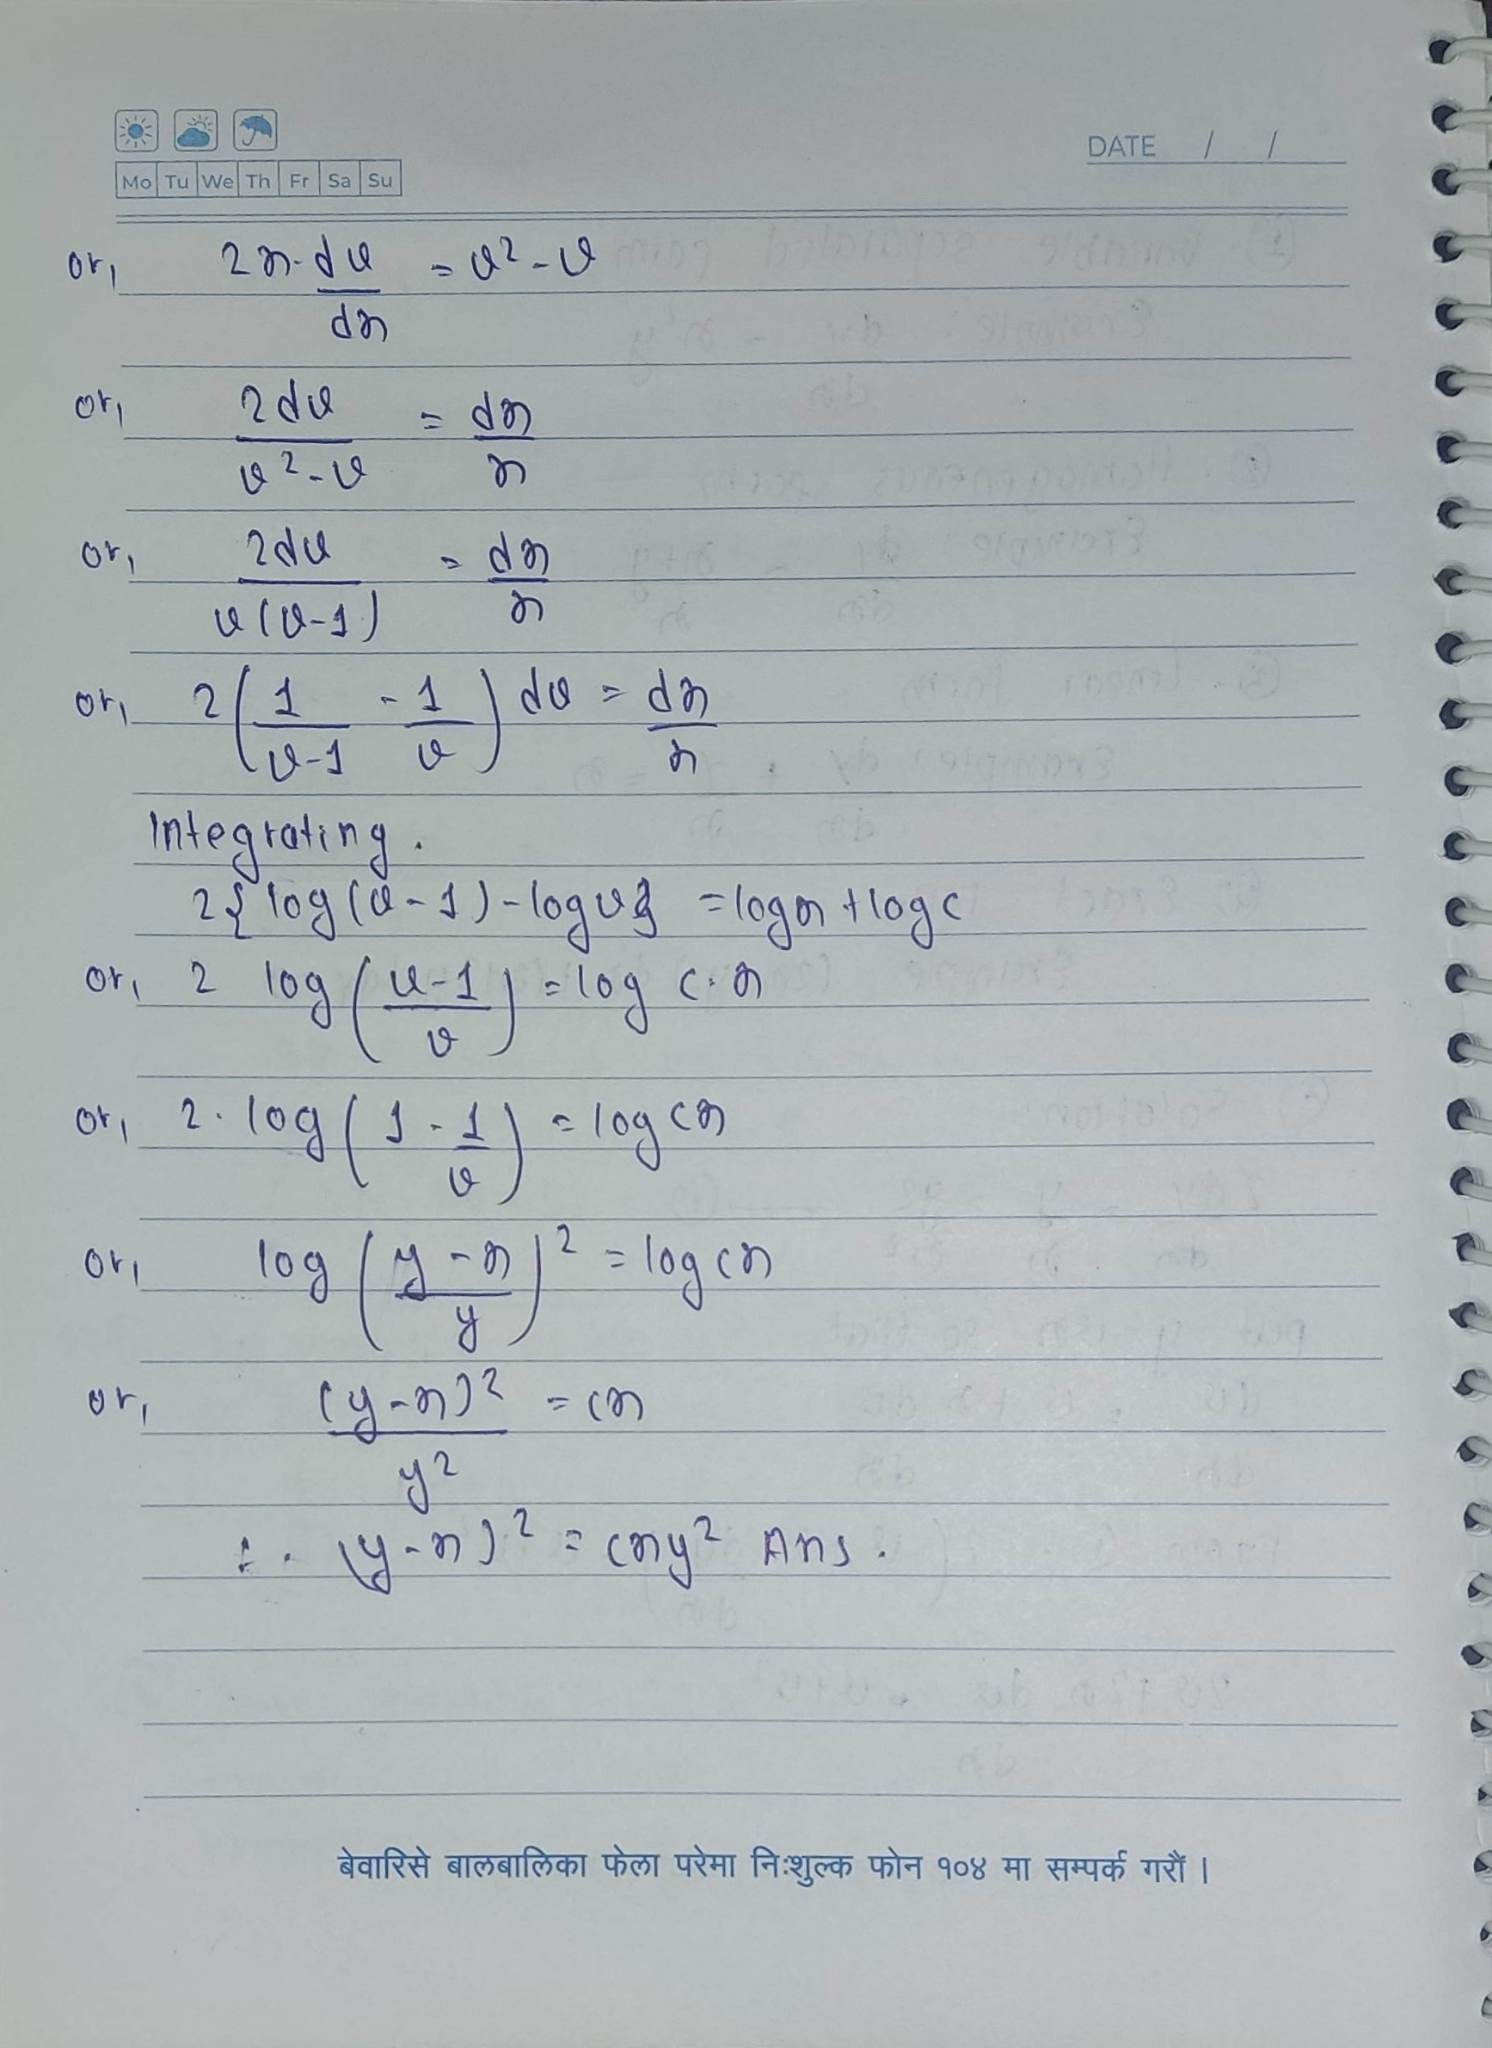 DATE / /
Mo Tu We Th Fr Sa Su
or, 2x. dv/dx = v² - v
or, 2dv/v² - v = dx/x
or, 2dv/v(v-1) = dx/x
or, 2(1/v-1 - 1/v) dv = dx/x
Integrating.
2{log(v-1) - log v} = log x + log c
or, 2 log(v-1/v) = log c.x
or, 2. log(1 - 1/v) = log cx
or, log(y-x/y)² = log cx
or, (y-x)²/y² = cx
∴ (y-x)² = cxy² Ans.
बेवारिसे बालबालिका फेला परेमा निःशुल्क फोन १०४ मा सम्पर्क गरौं ।